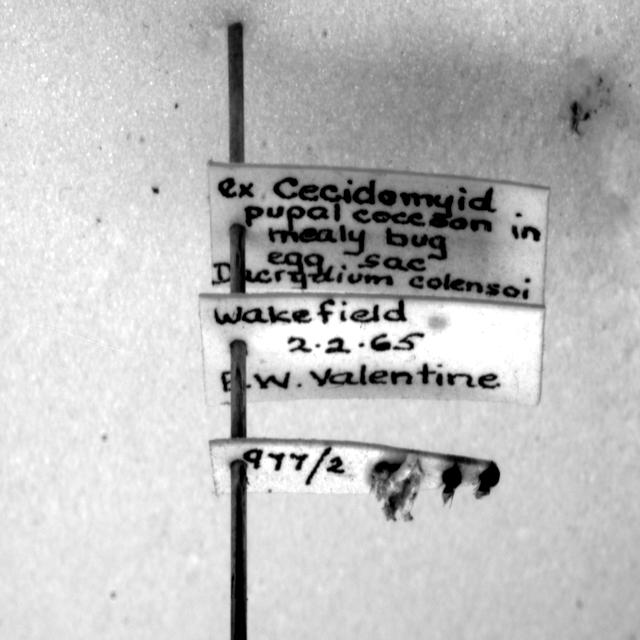 ex. Cecidomyid
pupal cocoon in
mealy bug
egg sac
Dacrydium colensoi
Wakefield
2.2.65
E.W. Valentine
977/2